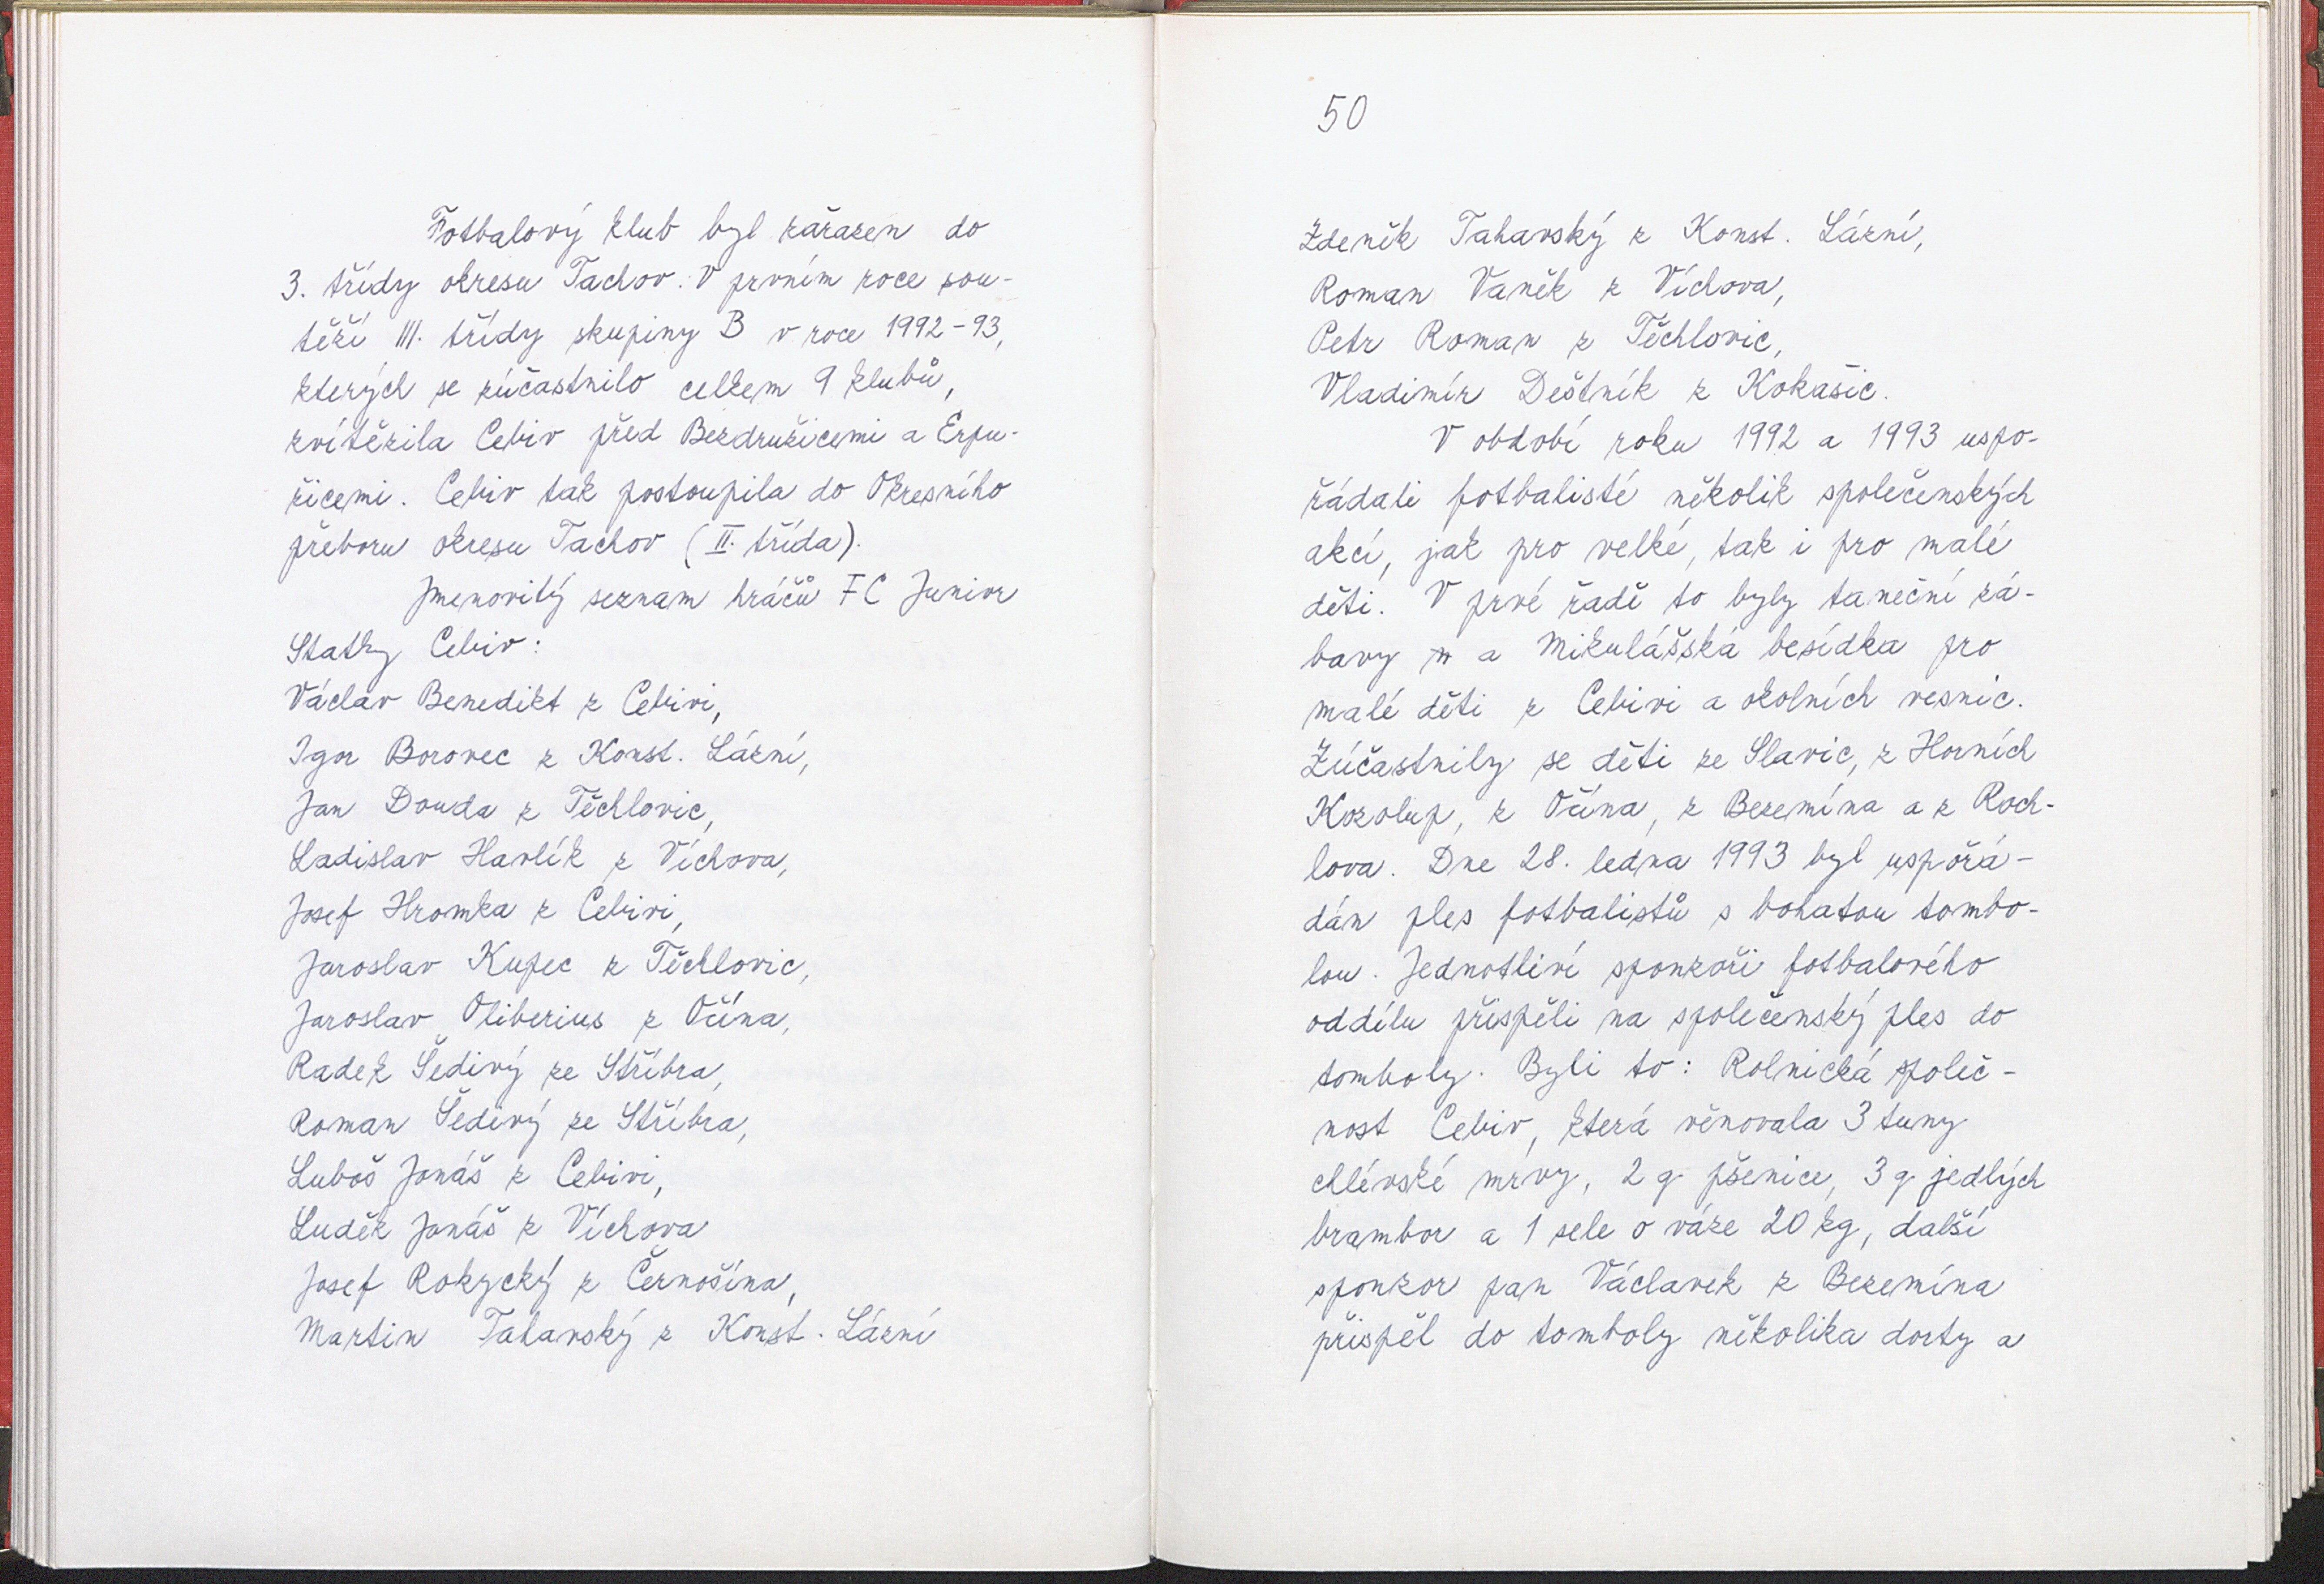 Fotbalový klub byl zařazen do
3. třídy okresu Tachov. V prvním roce sou-
těží III. třídy skupiny B v roce 1992-93,
kterých se zúčastnilo celkem 9 klubů,
zvítězila Cebiv před Bezdružicemi a Erpu-
žicemi. Cebiv tak postoupila do Okresního
přeboru okresu Tachov (II. třída).
Jmenovitý seznam hráčů FC Junior
Statky Cebiv:
Václav Benedikt z Cebivi,
Igor Borovec z Konst. Lázní,
Jan Douda z Těchlovic,
Ladislav Havlík z Víchova,
Josef Hromka z Cebivi,
Jaroslav Kupec z Těchlovic,
Jaroslav Oliberius z Očína,
Radek Šedivý ze Stříbra,
Roman Šedivý ze Stříbra,
Luboš Jonáš z Cebivi,
Luděk Jonáš z Víchova
Josef Rokycký z Černošína,
Martin Tahavský z Konst. Lázní
50
Zdeněk Tahavský z Konst. Lázní,
Roman Vaněk z Víchova,
Petr Roman z Těchlovic,
Vladimír Deštník z Kokašic.
V období roku 1992 a 1993 uspo-
řádali fotbalisté několik společenských
akcí, jak pro velké, tak i pro malé
děti. V prvé řadě to byly taneční zá-
bavy a Mikulášská besídka pro
malé děti z Cebivi a okolních vesnic.
Zúčastnily se děti ze Slavic, z Horních
Kozolup, z Očína, z Bezemína a z Roch-
lova. Dne 28. ledna 1993 byl uspořá-
dán ples fotbalistů s bohatou tombo-
lou. Jednotliví sponzoři fotbalového
oddílu přispěli na společenský ples do
tomboly. Byli to: Rolnická společ-
nost Cebiv, která věnovala 3 tuny
chlévské mrvy, 2 q pšenice, 3 q jedlých
brambor a 1 sele o váze 20 kg, další
sponzor pan Václavek z Bezemína
přispěl do tomboly několika dorty a